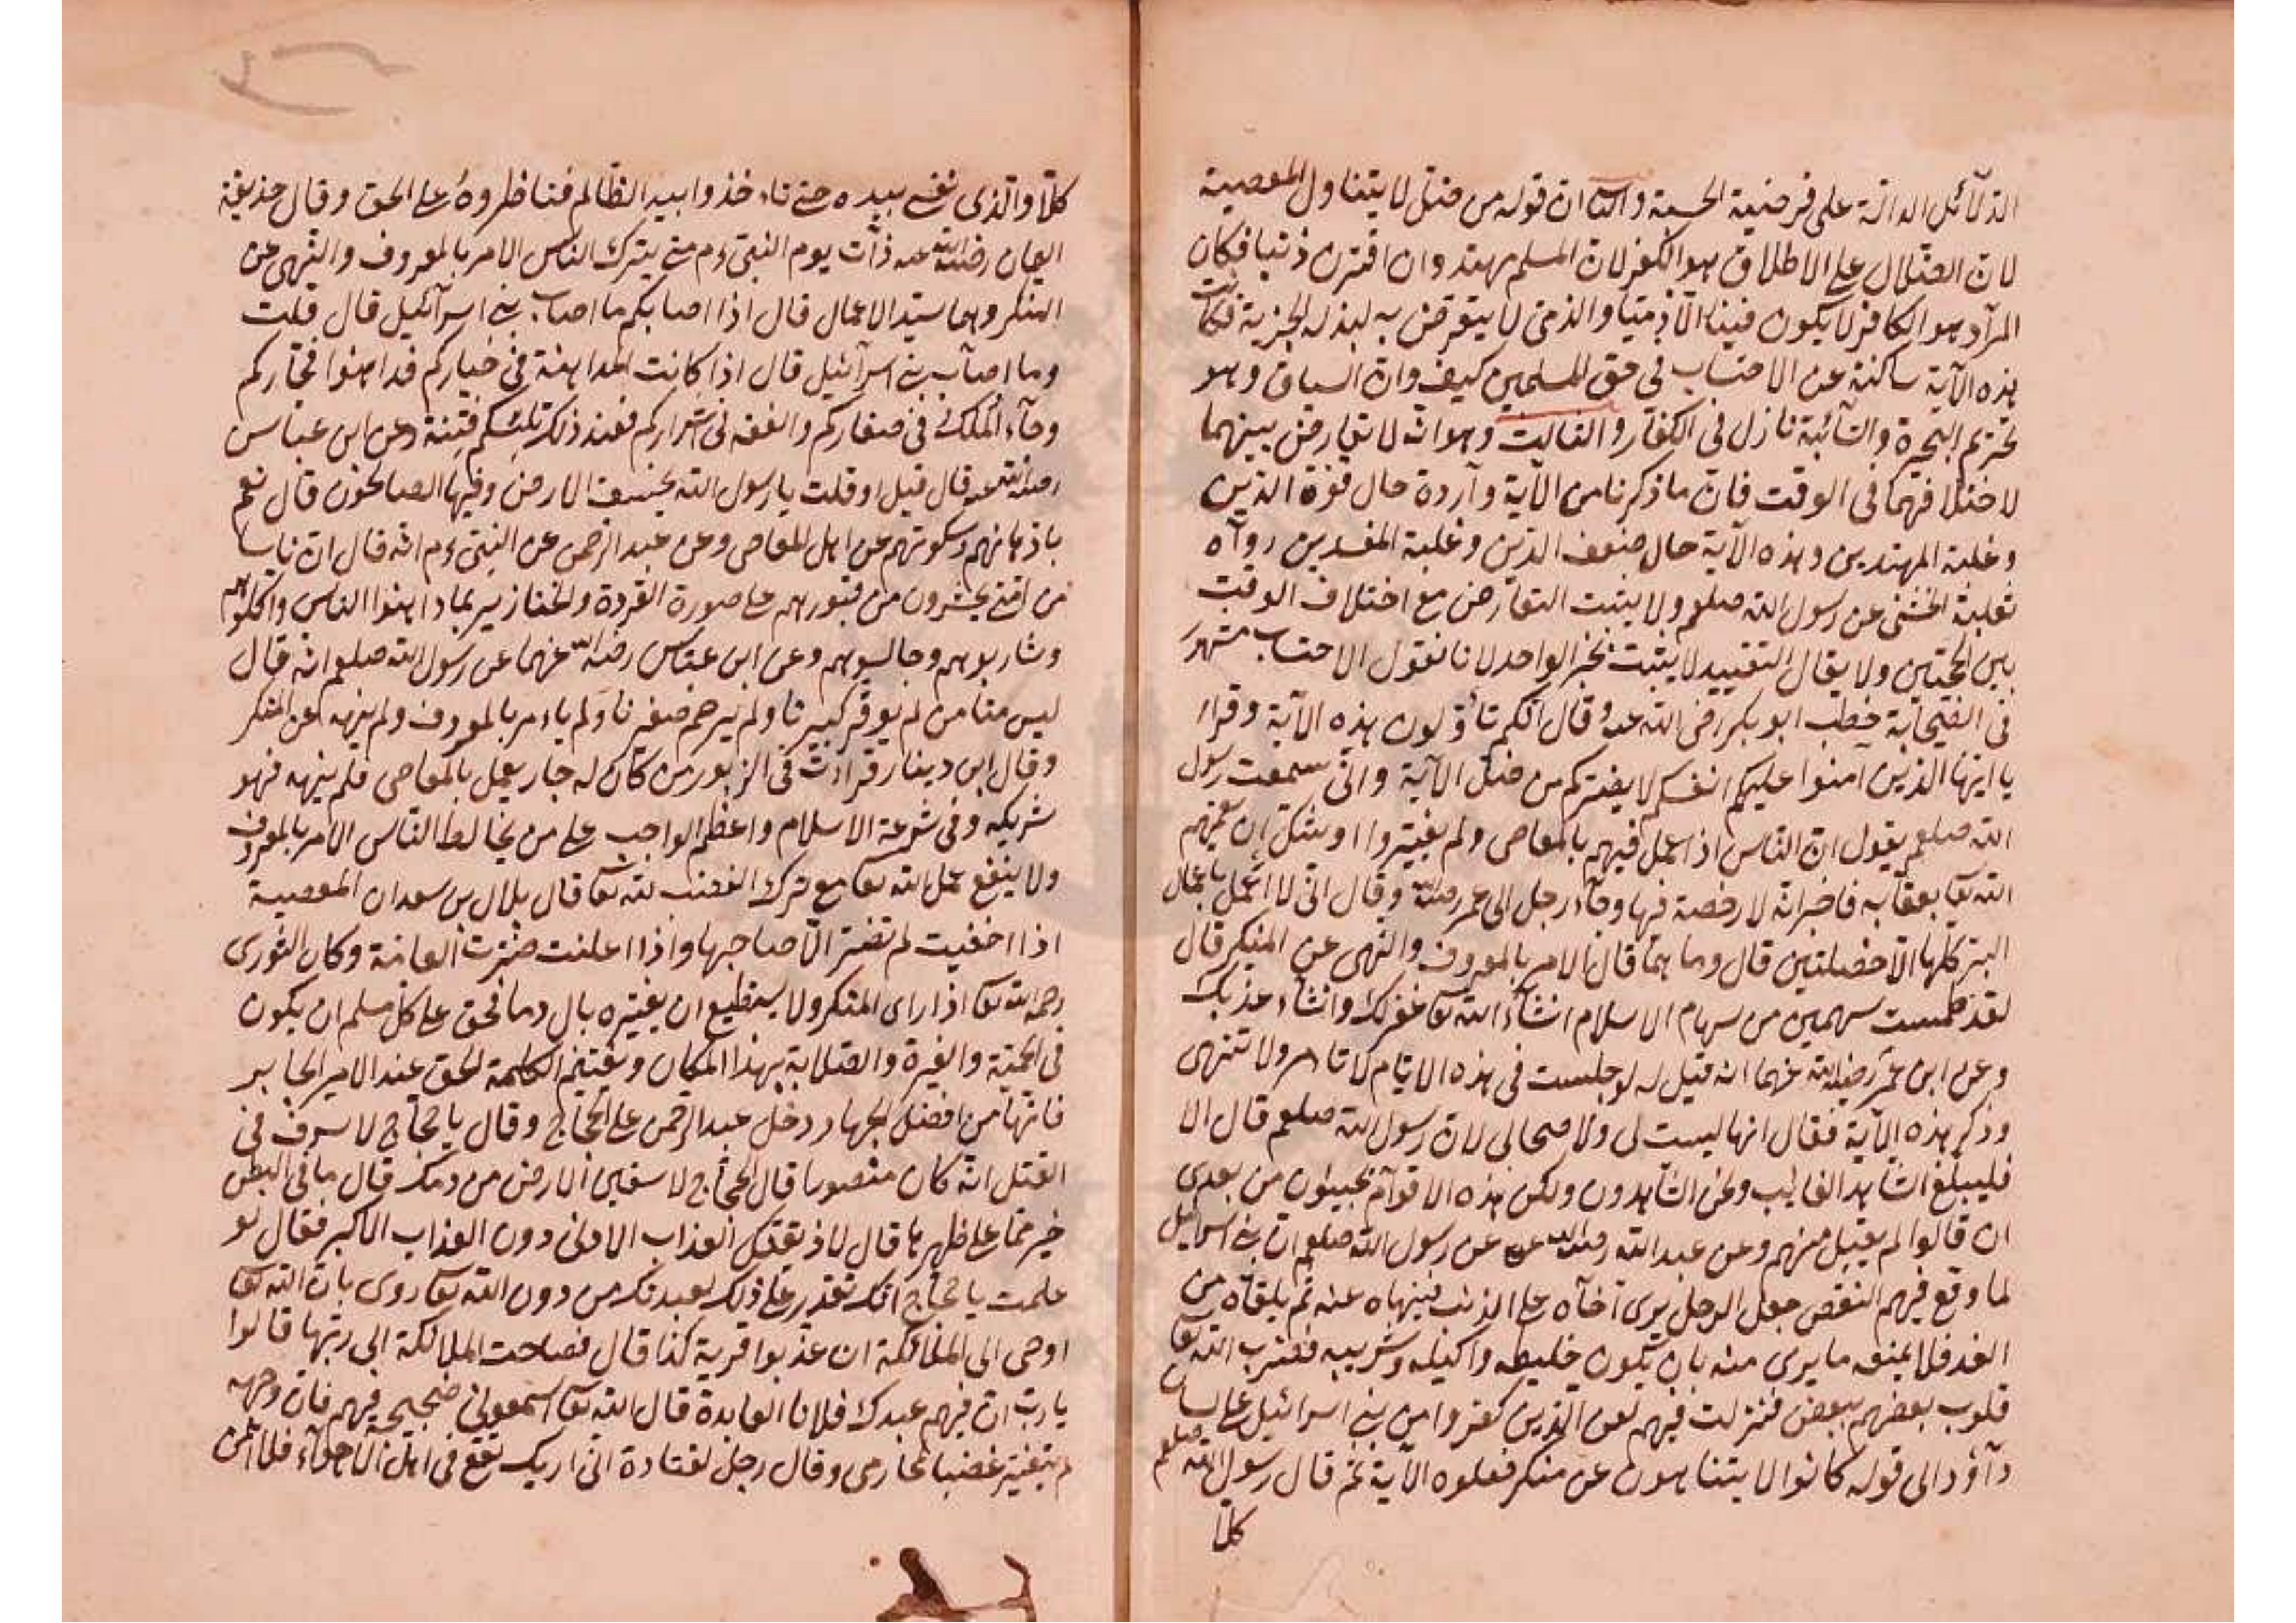 الدلائل الدالة على فرضية الحسبة والثانى ان قوله من ضل لا يتناول المعصية
لان الضلال على الاطلاق هو الكفر لان المسلم مهتد وان اقترن ذنبا فكان
المراد هو الكافر لا يكون فينا الا ذميا والذمى لا يتعرض به لبذله الجزية فكانت
هذه الآية ساكتة عن الاحتساب فى حق المسلمين كيف وان السباق وهو
تحريم البحيرة والسائبة نازل فى الكفار والثالث وهو انه لا تعارض بينهما
لاختلافهما فى الوقت فان ما ذكرنا من الآية واردة حال قوة الدين
وغلبة المهتدين وهذه الآية حال ضعف الدين وغلبة المفسدين رواه
ثعلبة الخشنى عن رسول الله صلعم ولا يثبت التعارض مع اختلاف الوقت
بين الحجتين ولا يقال التقييد لا يثبت بخبر الواحد لانا نقول الاحتساب مشهر
فى الصحابة خطب ابو بكر رضى الله عنه وقال انكم تأولون هذه الآية وقرأ
يا ايها الذين آمنوا عليكم انفسكم لا يضركم من ضل الآية وانى سمعت رسول
الله صلعم يقول ان الناس اذا عمل فيهم بالمعاصى ولم يغيروا اوشك ان يعمهم
الله تعا بعقابه فاخبر انه لا رخصة فيها وجاء رجل الى عمر رضى الله وقال انى لا اعمل باعمال
البر كلها الا خصلتين قال وما هما قال الامر بالمعروف والنهى عن المنكر قال
لقد طمست سهمين من سهام الاسلام انشاء الله تعا غفرلك وانشاء عذبك
وعن ابن عمر رضى الله عنهما انه قيل له لو جلست فى هذه الايام لا تامر ولا تنهى
وذكر هذه الآية فقال انها ليست لى ولا صحابى لان رسول الله صلعم قال الا
فليبلغ الشاهد الغائب ونحن الشاهدون ولكن هذه الاقوام يجيئون من بعدى
ان قالوا لم يقبل منهم وعن عبد الله رضى الله عنه عن رسول الله صلعم ان بنى اسرائيل
لما وقع فيهم النقص جعل الرجل يرى اخاه على الذنب فينهاه عنه ثم يلقاه من
الغد فلا يمنعه ما يرى منه بان يكون خليطه واكيله وشريبه فضرب الله تعا
قلوب بعضهم ببعض فنزلت فيهم لعن الذين كفروا من بنى اسرائيل على لسان
داؤد الى قوله كانوا لا يتناهون عن منكر فعلوه الآية ثم قال رسول الله صلعم
كلا
كلا والذى نفسى بيده حتى تاء خذوا بيد الظالم فتناظروه على الحق وقال حذيفة
اليمان رضى الله عنه ذات يوم النبى ءم متى يترك الناس الامر بالمعروف والنهى عن
المنكر وهما سيد الاعمال قال اذا اصابكم ما اصاب بنى اسرآئيل قال قلت
وما اصاب بنى اسرآئيل قال اذا كانت المداهنة فى خياركم فداهنوا فجاركم
وجاء الملك فى صغاركم والفقه فى اشراركم فعند ذلك تلبسكم فتنة وعن ابن عباس
رضى الله عنه قال قيل او قلت يا رسول الله يخسف الارض وفيها الصالحون قال نعم
باذهانهم وسكوتهم عن اهل المعاصى وعن عبد الرحمن عن النبى ءم انه قال ان ناسا
من امتى يحشرون من قبورهم على صورة القردة والخنازير بما داهنوا الناس واكلوهم
وشاربوهم وجالسوهم وعن ابن عباس رضى الله عنهما عن رسول الله صلعم انه قال
ليس منا من لم يوقر كبيرنا ولم يرحم صغيرنا ولم ياءمر بالمعروف ولم ينهه عن المنكر
وقال ابن دينار قراءت فى الزبور من كان له جار يعمل بالمعاصى فلم ينهه فهو
شريكه وفى شرعة الاسلام واعظم الواجب على من يخالط الناس الامر بالمعروف
ولا ينفع عمل لله تعا مع ترك الغضب لله تعا قال بلال بن سعد ان المعصية
اذا اخفيت لم تضر الا صاحبها واذا اعلنت ضرت العامة وكان الثورى
رحمه الله تعا اذا راى المنكر ولا يستطيع ان يغيره بال دما فحق على كل مسلم ان يكون
فى الحمية والغيرة والصلابة بهذا المكان ويغتنم الكلمة الحق عند الامير الجابر
فانها من افضل الجهاد ودخل عبد الرحمن على الحجاج وقال يا حجاج لا تسرف فى
القتل انه كان منصورا قال الحجاج لاسقين الارض من دمك قال ما فى البطن
خير مما على ظهرها قال لاذيقنك العذاب الادنى دون العذاب الاكبر فقال لو
علمت يا حجاج انك تقدر على ذلك لعبدتك من دون الله تعا روى بان الله تعا
اوحى الى الملائكة ان عذبوا قرية كذا قال فصاحت الملائكة الى ربها قالوا
يا رب ان فيهم عبدك فلانا العابدة قال الله تعا اسمعونى ضجيجه فيهم فان وجهه
لم يتغير غضبا لمحارمى وقال رجل لقتادة انى اريك تقع فى اهل الاهواء فلا امن